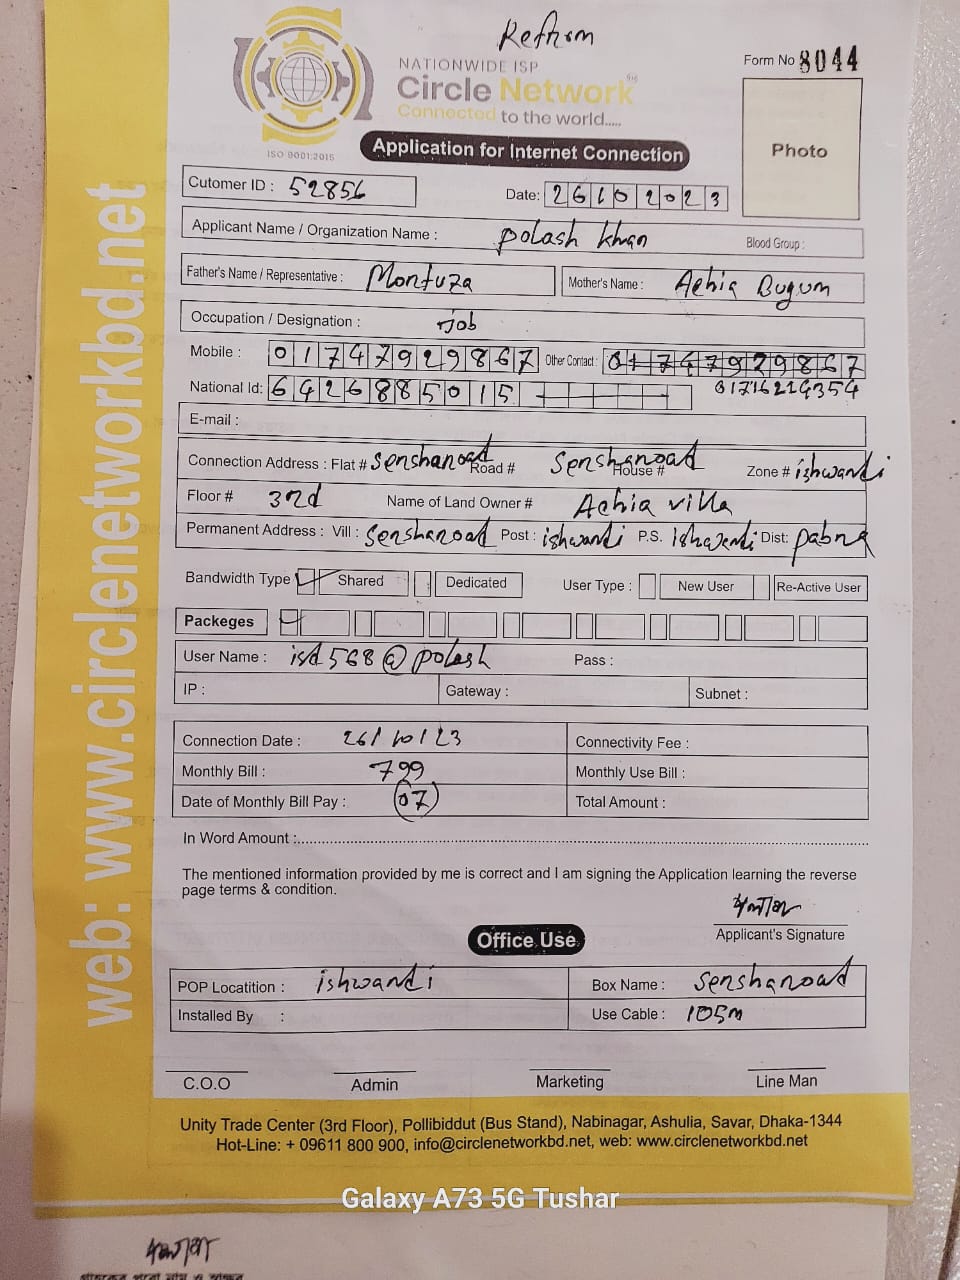 Refrom
NATIONWIDE ISP
Form No 8044
Circle Network
Connected to the world.....
ISO 9001:2015
Application for Internet Connection
Photo
Cutomer ID : 52856
Date: 26102023
Applicant Name / Organization Name : Polash khan Blood Group :
Father's Name / Representative : Montuza Mother's Name : Achia Bugum
Occupation / Designation : Job
Mobile : 01747929867 Other Contact : 01747929867
National Id: 6426885015 01716214354
E-mail :
Connection Address : Flat # Senshanoad Road # Senshanoad House # Zone # ishwardi
Floor # 3rd Name of Land Owner # Achia villa
Permanent Address : Vill : Senshanoad Post : ishwardi P.S. Ishwardi Dist: Pabna
Bandwidth Type Shared Dedicated User Type : New User Re-Active User
Packeges
User Name : isd568@polash Pass :
IP : Gateway : Subnet :
Connection Date : 26/10/23 Connectivity Fee :
Monthly Bill : 799 Monthly Use Bill :
Date of Monthly Bill Pay : 07 Total Amount :
In Word Amount :
The mentioned information provided by me is correct and I am signing the Application learning the reverse
page terms & condition.
পলাশ
Applicant's Signature
Office Use
POP Locatition : ishwardi Box Name : Senshanoad
Installed By : Use Cable : 105m
C.O.O Admin Marketing Line Man
Unity Trade Center (3rd Floor), Pollibiddut (Bus Stand), Nabinagar, Ashulia, Savar, Dhaka-1344
Hot-Line: + 09611 800 900, info@circlenetworkbd.net, web: www.circlenetworkbd.net
web: www.circlenetworkbd.net
Galaxy A73 5G Tushar
পলাশ